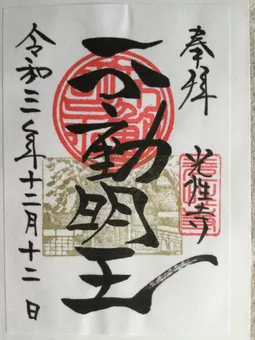 奉拝
光性寺
不動明王
令和三年十二月十二日